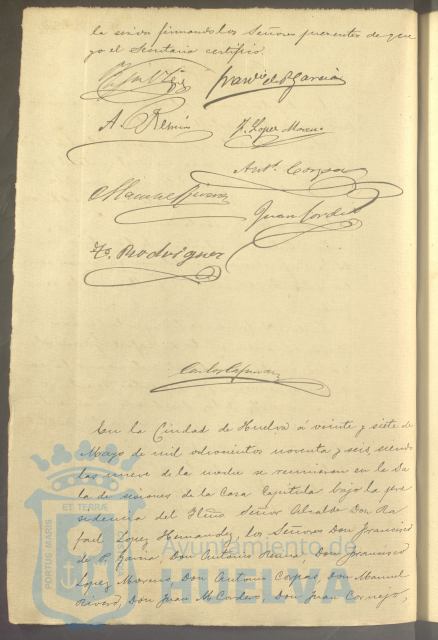 la sesion firmando los Señores presentes de que
yo el Secretario certifico.
Franc.º de P. Garcia
A. Remis
F. Lopez Moreno
Ant.º Corpas
Manuel Rivero
Juan Cordero
F.º Rodriguez
En la Ciudad de Huelva á veinte y siete de
Mayo de mil ochocientos noventa y seis, siendo
las nueve de la noche se reunieron en la Sa
la de sesiones de la Casa Capitular bajo la pre
sidencia del Señor Alcalde Don Ra
fael Lopez Hernandez, los Señores Don Francisco
de P. Garcia, Don Antonio Remis, Don Francisco
Lopez Moreno, Don Antonio Corpas, Don Manuel
Rivero, Don Juan M. Cordero, Don Juan Cornejo,
PORTUS MARIS ET TERRÆ
Ayuntamiento de
HUELVA